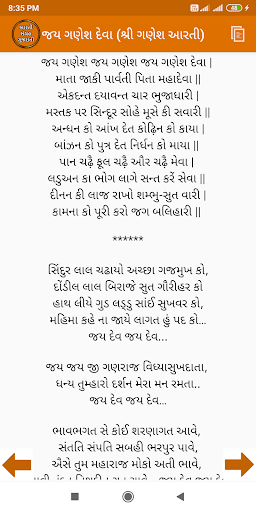 8:35 PM
48
જય ગણેશ દેવા (શ્રી ગણેશ આરતી)
જય ગણેશ જય ગણેશ જય ગણેશ દેવા |
માતા જાકી પાર્વતી પિતા મહાદેવા ||
એકદન્ત દયાવન્ત ચાર ભુજાધારી |
મસ્તક પર સિન્દૂર સોહે મૂસે કી સવારી ||
અન્ધન કો આંખ દેત કોઢ઼િન કો કાયા |
બાંઝન કો પુત્ર દેત નિર્ધન કો માયા ||
પાન ચઢ઼ૈ ફૂલ ચઢ઼ૈ ઔર ચઢ઼ૈ મેવા |
લડુઅન કા ભોગ લાગે સન્ત કરેં સેવા ||
દીનન કી લાજ રાખો શમ્ભુ-સુત વારી |
કામના કો પૂરી કરો જગ બલિહારી ||
******
સિંદુર લાલ ચઢાયો અચ્છા ગજમુખ કો,
દોંદીલ લાલ બિરાજે સુત ગૌરીહર કો
હાથ લીયે ગુડ લડ્ડુ સાંઈ સુખવર કો,
મહિમા કહે ના જાયે લાગત હું પદ કો...
જય દેવ જય દેવ...
જય જય જી ગણરાજ વિદ્યાસુખદાતા,
ધન્ય તુમ્હારો દર્શન મેરા મન રમતા..
જય દેવ જય દેવ...
ભાવભગત સે કોઈ શરણાગત આવે,
સંતતિ સંપતિ સબહી ભરપુર પાવે,
ઐસે તુમ મહારાજ મોકો અતી ભાવે,